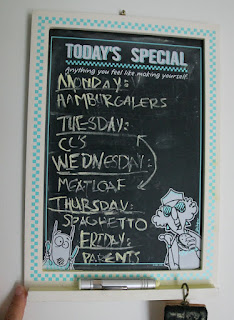 TODAY'S SPECIAL
Anything you feel like making yourself.
MONDAY:
HAMBURGALERS
TUESDAY:
CC'S
WEDNESDAY:
MEATLOAF
THURSDAY:
SPAGHETTO
FRIDAY:
PARENTS